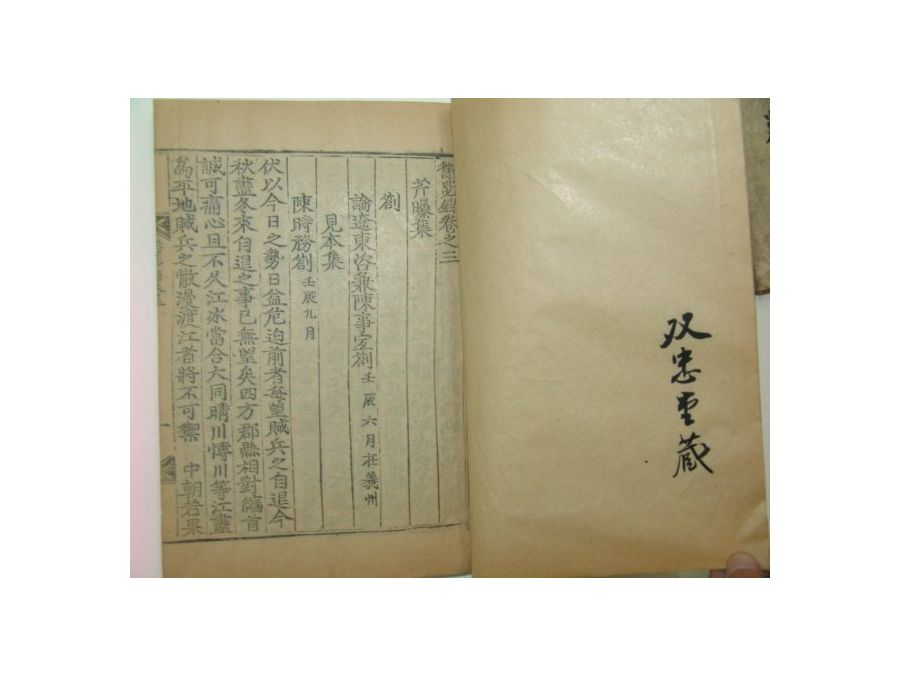 双忠堂藏
懲毖錄卷之三
芹曝集
劄
論遼東咨兼陳事宜劄 壬辰六月在義州
見本集
陳時務劄 壬辰九月
伏以今日之勢日益危迫前者每望賊兵之自退今
秋盡冬來自退之事已無望矣四方郡縣相對縮首
誠可痛心且不久江氷當合大同晴川愽川等江盡
爲平地賊兵之散漫渡江者將不可禦 中朝若果